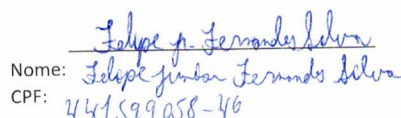 Felipe Jr. Fernandes Silva
Nome: Felipe Junior Fernandes Silva
CPF: 441599058-46